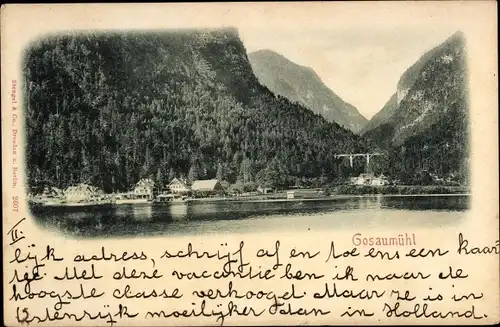 Stengel & Co., Dresden u. Berlin. 2607
Gosaumühl
II.
lijk adres, schrijf af en toe eens een kaar
tje. Met deze vacantie ben ik naar de
hoogste classe verhoogd. Maar ze is in
Oostenrijk moeilijker dan in Holland.